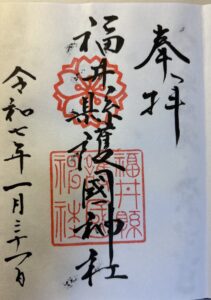 奉拝
福井縣護國神社
福井縣
護國
神社
令和七年一月三十一日